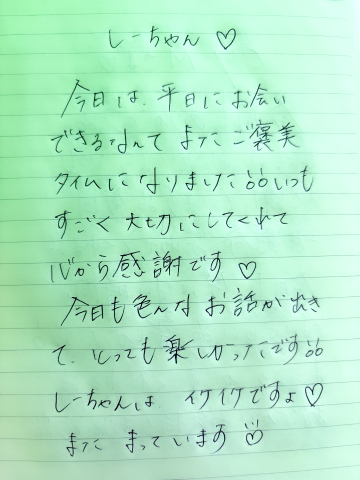 しーちゃん♡
今日は、平日にお会い
できるなんて またご褒美
タイムになりました!! いつも
すごく大切にしてくれて
心から感謝です♡
今日も色んなお話が出き
て、とっても楽しかったです!!
しーちゃんは、イケイケですよ♡
また まっています